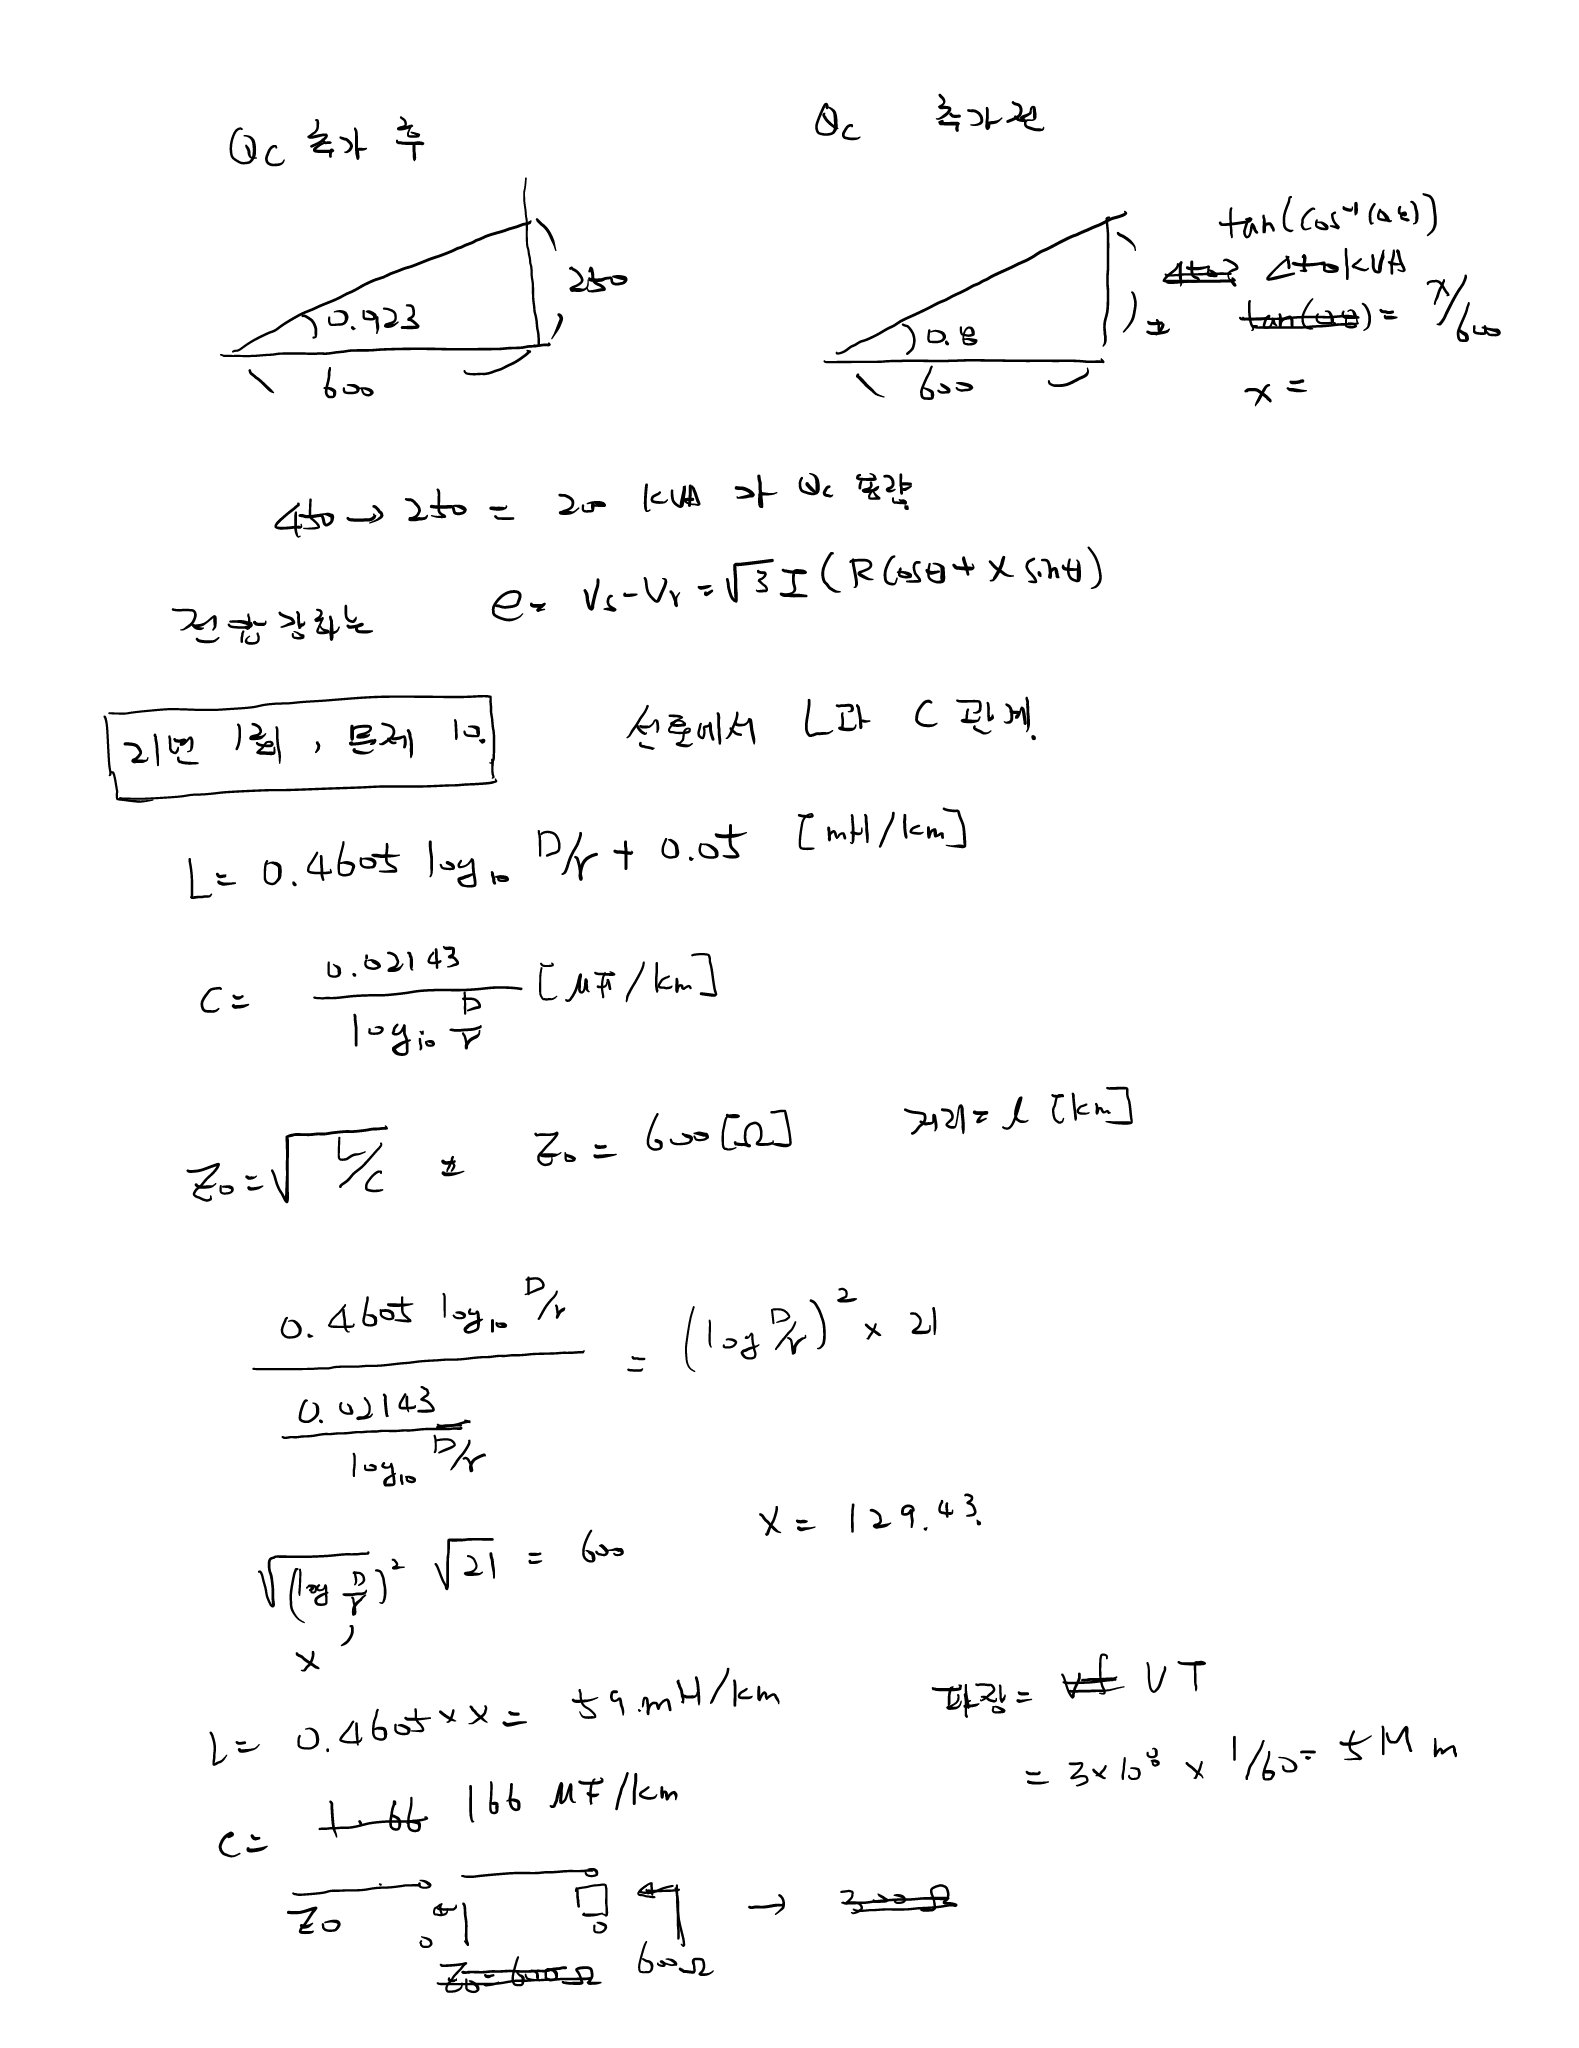 Qc 추가 후
Qc 추가 전
0.923
250
600
0.8
600
tan(cos⁻¹(0.8))
450kVA
x/600
x =
450 → 250 = 200 kVA 가 Qc 용량
전압강하는 e = Vs - Vr = √3 I (R cosθ + X sinθ)
21번 1회, 문제 10.
선로에서 L과 C 관계.
L = 0.4605 log₁₀ D/r + 0.05 [mH/km]
C = 0.02143 / log₁₀ D/r [μF/km]
Z₀ = √(L/C) Z₀ = 600[Ω] 거리 = l [km]
0.4605 log₁₀ D/r / (0.02143 / log₁₀ D/r) = (log D/r)² x 21
√(log D/r)² √21 = 600 X = 129.43.
x
L = 0.4605 x x = 59.mH/km
파장 = VT
= 3x10⁸ x 1/60 = 5M m
C = 166 μF/km
Z₀
600Ω
→